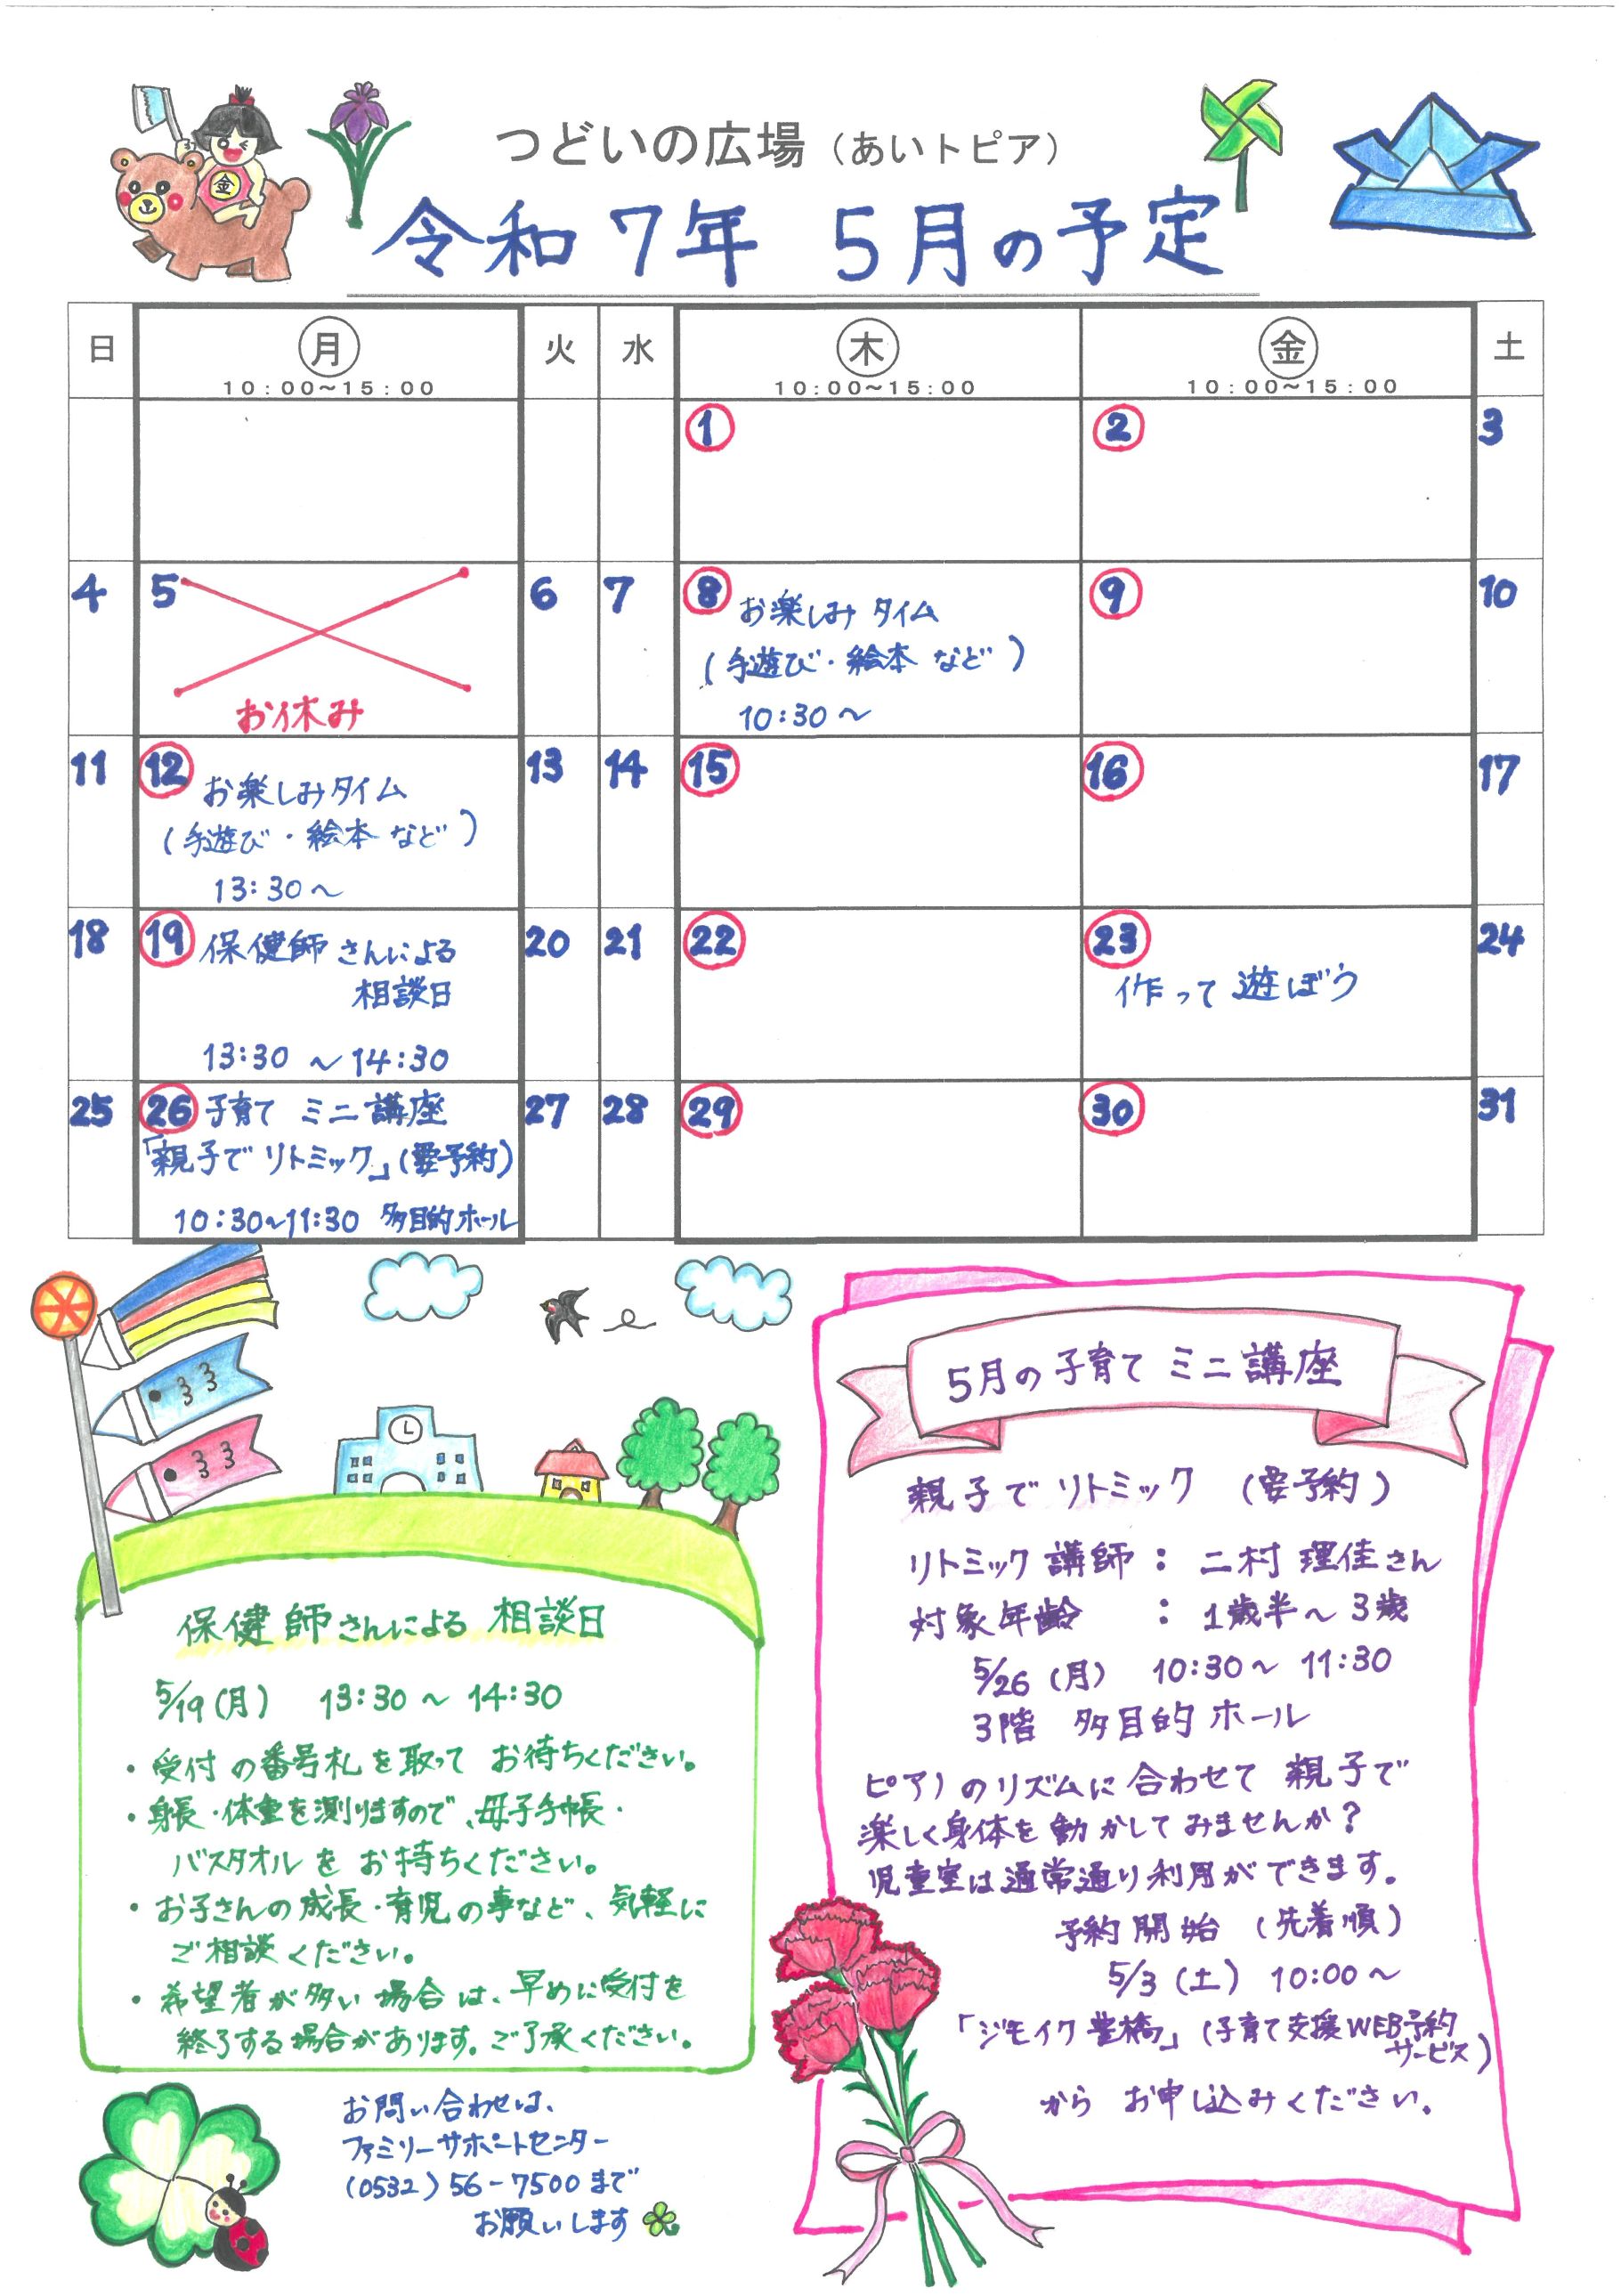 金
つどいの広場（あいトピア）
令和7年 5月の予定
日 月 火 水 木 金 土
10：00～15：00 10：00～15：00 10：00～15：00
1 2 3
4 5 6 7 8 9 10
お休み
お楽しみタイム
（手遊び・絵本など）
10:30～
11 12 13 14 15 16 17
お楽しみタイム
（手遊び・絵本など）
13:30～
18 19 20 21 22 23 24
保健師さんによる
相談日
13:30～14:30
作って遊ぼう
25 26 27 28 29 30 31
子育てミニ講座
「親子でリトミック」（要予約）
10:30～11:30 多目的ホール
保健師さんによる相談日
5/19（月） 13:30～14:30
・受付の番号札を取ってお待ちください。
・身長・体重を測りますので、母子手帳・
バスタオルをお持ちください。
・お子さんの成長・育児の事など、気軽に
ご相談ください。
・希望者が多い場合は、早めに受付を
終了する場合があります。ご了承ください。
お問い合わせは、
ファミリーサポートセンター
（0532）56-7500まで
お願いします
5月の子育てミニ講座
親子でリトミック （要予約）
リトミック講師：二村理佳さん
対象年齢 ：1歳半～3歳
5/26（月） 10:30～11:30
3階 多目的ホール
ピアノのリズムに合わせて親子で
楽しく身体を動かしてみませんか？
児童室は通常通り利用ができます。
予約開始（先着順）
5/3（土） 10:00～
「ジモイク豊橋」（子育て支援WEB予約
サービス）
からお申し込みください。